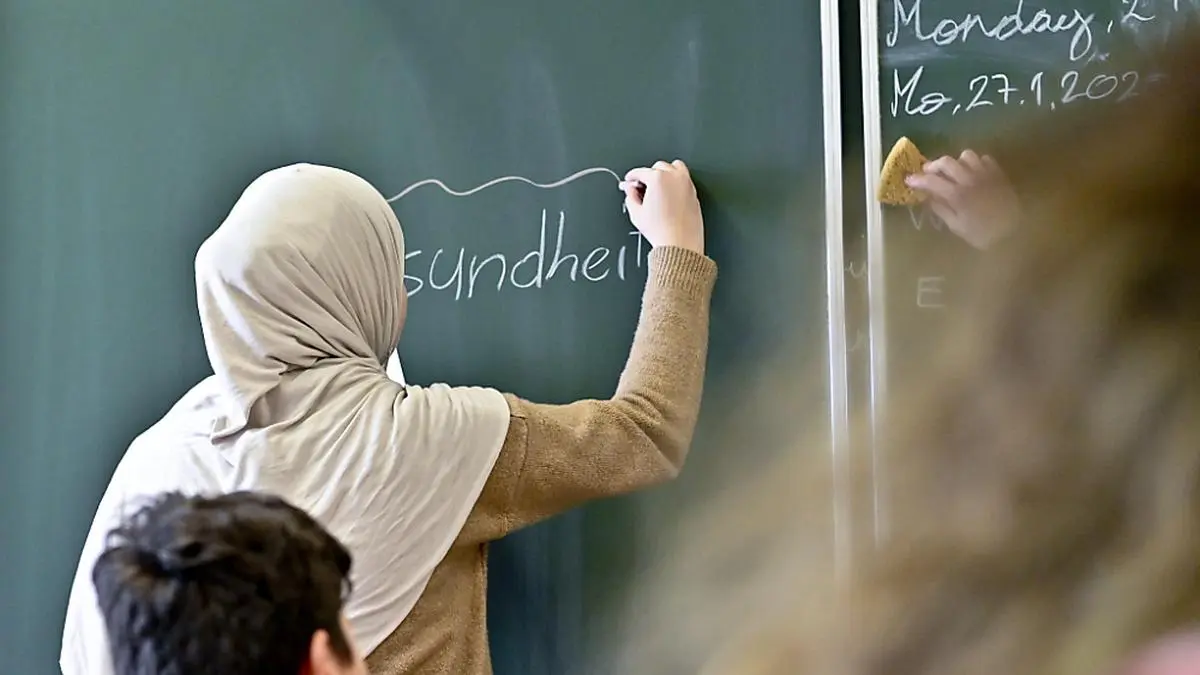 sundheit
Monday, 2
Mo, 27.1.202
E